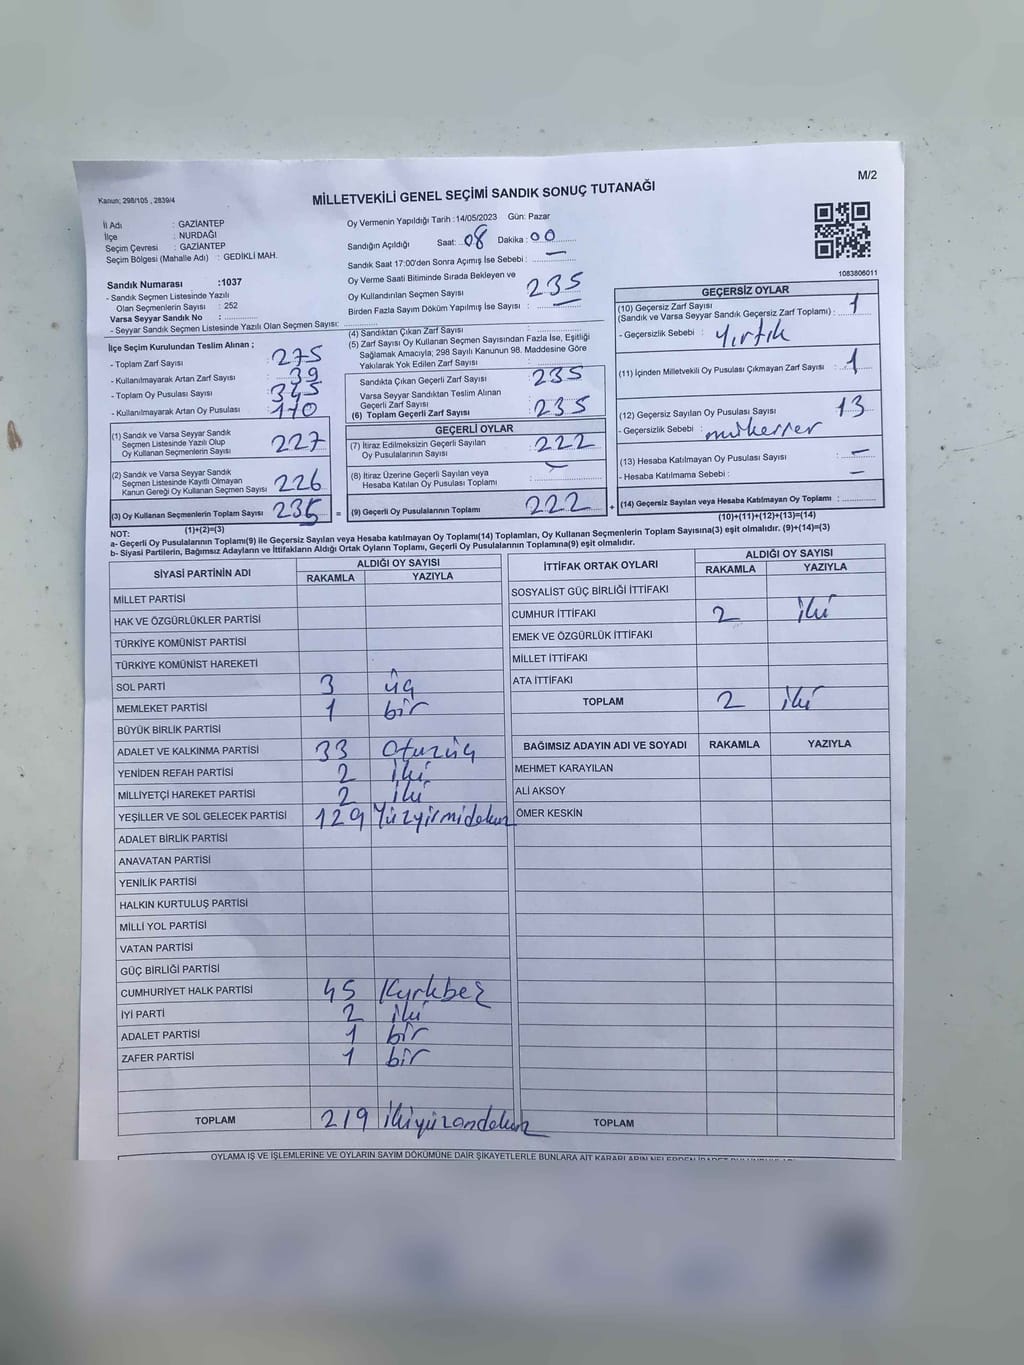 M/2
Kanun; 298/105 , 2839/4
MİLLETVEKİLİ GENEL SEÇİMİ SANDIK SONUÇ TUTANAĞI
İl Adı : GAZİANTEP
İlçe : NURDAĞI
Seçim Çevresi : GAZİANTEP
Seçim Bölgesi (Mahalle Adı) : GEDİKLİ MAH.
Sandık Numarası :1037
- Sandık Seçmen Listesinde Yazılı
Olan Seçmenlerin Sayısı : 252
Varsa Seyyar Sandık No :
- Seyyar Sandık Seçmen Listesinde Yazılı Olan Seçmen Sayısı:
Oy Vermenin Yapıldığı Tarih :14/05/2023 Gün: Pazar
Sandığın Açıldığı Saat: 08 Dakika: 00
Sandık Saat 17:00'den Sonra Açımış İse Sebebi : —
Oy Verme Saati Bitiminde Sırada Bekleyen ve
Oy Kullandırılan Seçmen Sayısı : 235
Birden Fazla Sayım Döküm Yapılmış İse Sayısı : —
1083806011
İlçe Seçim Kurulundan Teslim Alınan ;
- Toplam Zarf Sayısı : 275
- Kullanılmayarak Artan Zarf Sayısı : 39
- Toplam Oy Pusulası : 345
- Kullanılmayarak Artan Oy Pusulası : 170
(1) Sandık ve Varsa Seyyar Sandık
Seçmen Listesinde Yazılı Olup
Oy Kullanan Seçmenlerin Sayısı 227
(2) Sandık ve Varsa Seyyar Sandık
Seçmen Listesinde Kayıtlı Olmayan
Kanun Gereği Oy Kullanan Seçmen Sayısı 226
(3) Oy Kullanan Seçmenlerin Toplam Sayısı 235 =
(1)+(2)=(3)
(4) Sandıktan Çıkan Zarf Sayısı :
(5) Zarf Sayısı Oy Kullanan Seçmen Sayısından Fazla İse, Eşitliği
Sağlamak Amacıyla; 298 Sayılı Kanunun 98. Maddesine Göre
Yakılarak Yok Edilen Zarf Sayısı :
Sandıkta Çıkan Geçerli Zarf Sayısı : 235
Varsa Seyyar Sandıktan Teslim Alınan
Geçerli Zarf Sayısı
(6) Toplam Geçerli Zarf Sayısı : 235
GEÇERLİ OYLAR
(7) İtiraz Edilmeksizin Geçerli Sayılan
Oy Pusulalarının Sayısı : 222
(8) İtiraz Üzerine Geçerli Sayılan veya
Hesaba Katılan Oy Pusulası Toplamı : —
(9) Geçerli Oy Pusulalarının Toplamı : 222 +
GEÇERSİZ OYLAR
(10) Geçersiz Zarf Sayısı
(Sandık ve Varsa Seyyar Sandık Geçersiz Zarf Toplamı) : 1
- Geçersizlik Sebebi : yırtık
(11) İçinden Milletvekili Oy Pusulası Çıkmayan Zarf Sayısı : 1
(12) Geçersiz Sayılan Oy Pusulası Sayısı : 13
- Geçersizlik Sebebi : mükerrer
(13) Hesaba Katılmayan Oy Pusulası Sayısı : —
- Hesaba Katılmama Sebebi : —
(14) Geçersiz Sayılan veya Hesaba Katılmayan Oy Toplamı :
(10)+(11)+(12)+(13)=(14)
NOT:
a- Geçerli Oy Pusulalarının Toplamı(9) ile Geçersiz Sayılan veya Hesaba katılmayan Oy Toplamı(14) Toplamları, Oy Kullanan Seçmenlerin Toplam Sayısına(3) eşit olmalıdır. (9)+(14)=(3)
b- Siyasi Partilerin, Bağımsız Adayların ve İttifakların Aldığı Ortak Oyların Toplamı, Geçerli Oy Pusulalarının Toplamına(9) eşit olmalıdır.
SİYASİ PARTİNİN ADI ALDIĞI OY SAYISI
RAKAMLA YAZIYLA
MİLLET PARTİSİ
HAK VE ÖZGÜRLÜKLER PARTİSİ
TÜRKİYE KOMÜNİST PARTİSİ
TÜRKİYE KOMÜNİST HAREKETİ
SOL PARTİ 3 üç
MEMLEKET PARTİSİ 1 bir
BÜYÜK BİRLİK PARTİSİ
ADALET VE KALKINMA PARTİSİ 33 Otuzüç
YENİDEN REFAH PARTİSİ 2 iki
MİLLİYETÇİ HAREKET PARTİSİ 2 iki
YEŞİLLER VE SOL GELECEK PARTİSİ 129 Yüzyirmidokuz
ADALET BİRLİK PARTİSİ
ANAVATAN PARTİSİ
YENİLİK PARTİSİ
HALKIN KURTULUŞ PARTİSİ
MİLLİ YOL PARTİSİ
VATAN PARTİSİ
GÜÇ BİRLİĞİ PARTİSİ
CUMHURİYET HALK PARTİSİ 45 Kırkbeş
İYİ PARTİ 2 iki
ADALET PARTİSİ 1 bir
ZAFER PARTİSİ 1 bir
TOPLAM 219 ikiyüzondokuz
İTTİFAK ORTAK OYLARI ALDIĞI OY SAYISI
RAKAMLA YAZIYLA
SOSYALİST GÜÇ BİRLİĞİ İTTİFAKI
CUMHUR İTTİFAKI 2 iki
EMEK VE ÖZGÜRLÜK İTTİFAKI
MİLLET İTTİFAKI
ATA İTTİFAKI
TOPLAM 2 iki
BAĞIMSIZ ADAYIN ADI VE SOYADI RAKAMLA YAZIYLA
MEHMET KARAYILAN
ALİ AKSOY
ÖMER KESKİN
TOPLAM
OYLAMA İŞ VE İŞLEMLERİNE VE OYLARIN SAYIM DÖKÜMÜNE DAİR ŞİKAYETLERLE BUNLARA AİT KARARLARIN